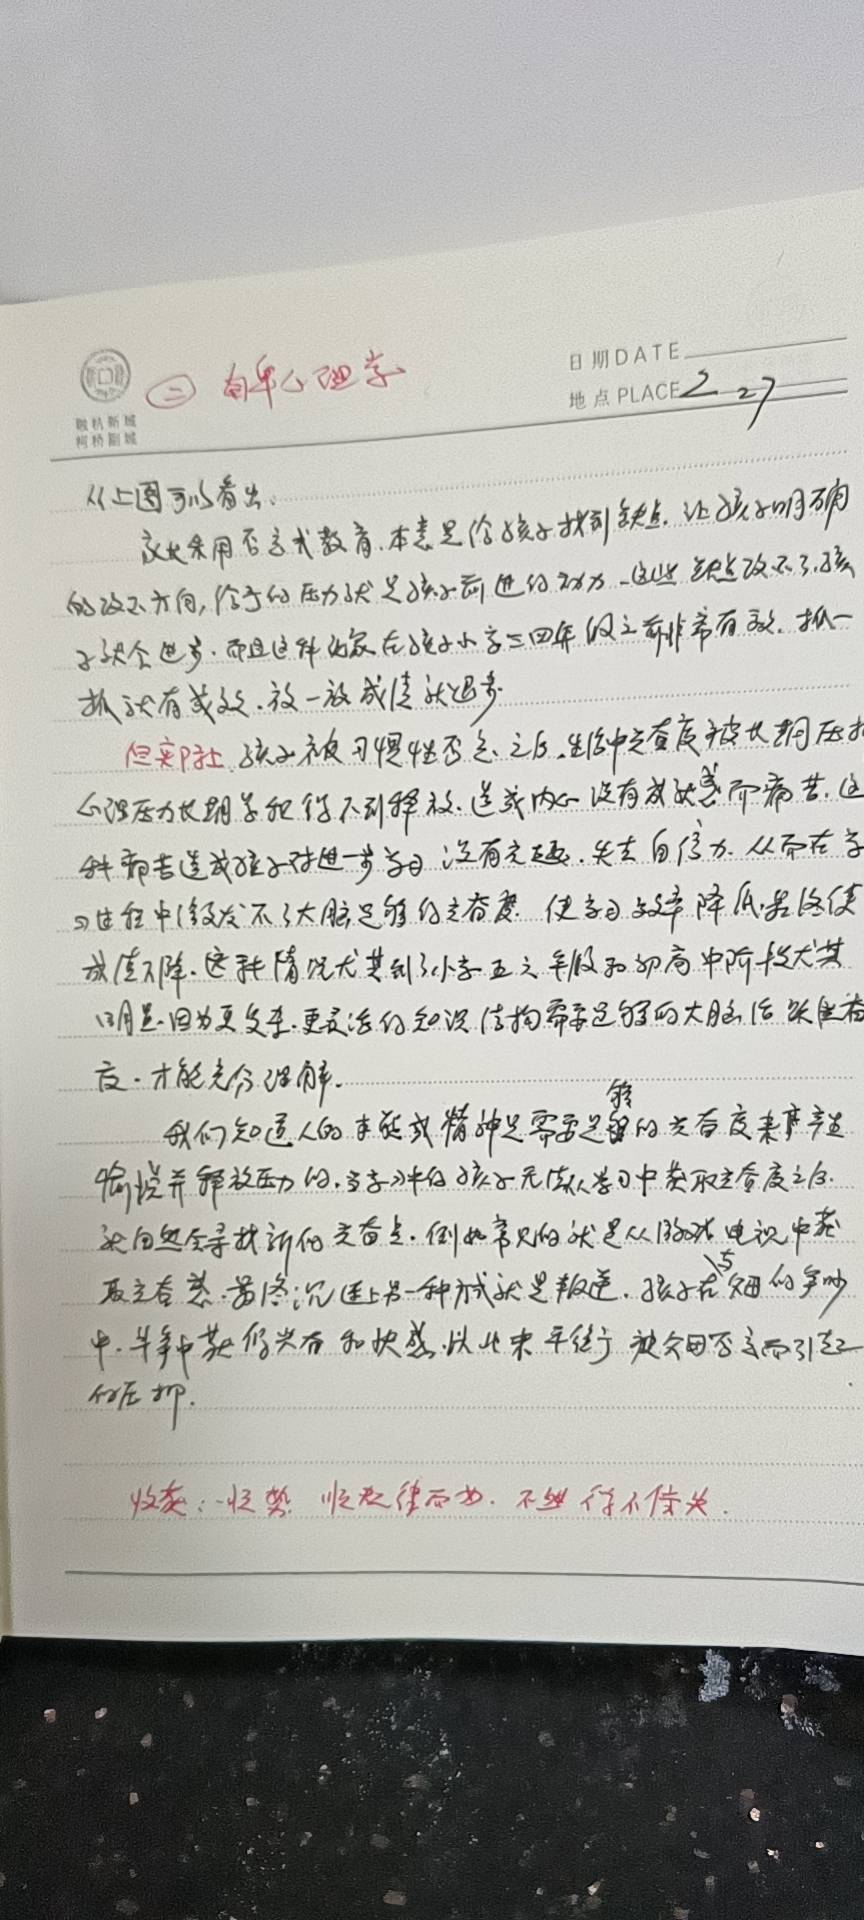 融杭新城
柯桥副城
二 自卑心理学
日期DATE
地点PLACE 2 27
从上图可以看出、
家长采用否定式教育.本意是给孩子找到缺点.让孩子明确
的改正方向,给予的压力就是孩子前进的动力.这些缺点改正了.孩
子就会进步.而且这种 在孩子小学三四年级之前非常有效.抓一
抓就有成效.放一放成绩就退步.
但实际上 孩子被习惯性否定之后.生活中兴奋度被长期压抑
心理压力长期 得不到释放.造成内心没有成就感而痛苦.这
种痛苦造成孩子对进一步学习没有兴趣.失去自信力.从而在学
习过程中激发不了大脑足够的兴奋度 使学习效率降低.最终使
成绩下降.这种情况尤其到了小学五六年级和初高中阶段尤其
明显.因为更复杂.更灵活的知识结构需要足够的大脑活跃兴奋
度.才能充分理解.
我们知道人的本能或精神是需要足够的兴奋度来产生
愉悦并释放压力的.当学习中的孩子无法从学习中获取兴奋度之后.
就自然会寻找新的兴奋点.例如常见的就是从游戏电视中获
取兴奋感.最终沉迷上另一种方式就是叛逆.孩子在与父母的争吵
中.斗争中获得兴奋和快感.以此来平衡被父母否定而引起
的压抑.
收获:顺势 顺规律而为.不然得不偿失.